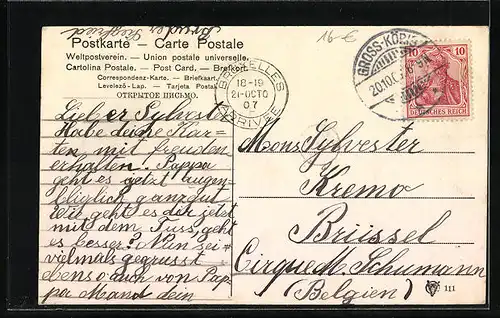 Bruder Siegfried
16 €
Postkarte – Carte Postale
Weltpostverein. – Union postale universelle.
Cartolina Postale. – Post Card. – Brefkort.
Correspondenz-Karte. – Briefkaart.
Levelező-Lap. – Tarjeta Postal.
ОТКРЫТОЕ ПИСЬМО.
BRUXELLES
18-19
21 OCTO
07
ARRIVÉE
GROSS-
20.10.0
10
10
DEUTSCHES REICH
Lieber Sylvester
Habe deine Kar=
ten mit freuden
erhalten! Pappa
geht es getzt augen-
bliglich ganz gut
Wie geht es dir jetzt
mit dem Fuss, geht
es besser? Nun sei
vielmals gegrusst
ebenso auch von Pap
pa Mand dein
Mons Sylvester
Kremo
Brüssel
Cirque M. Schumann
(Belgien)
111